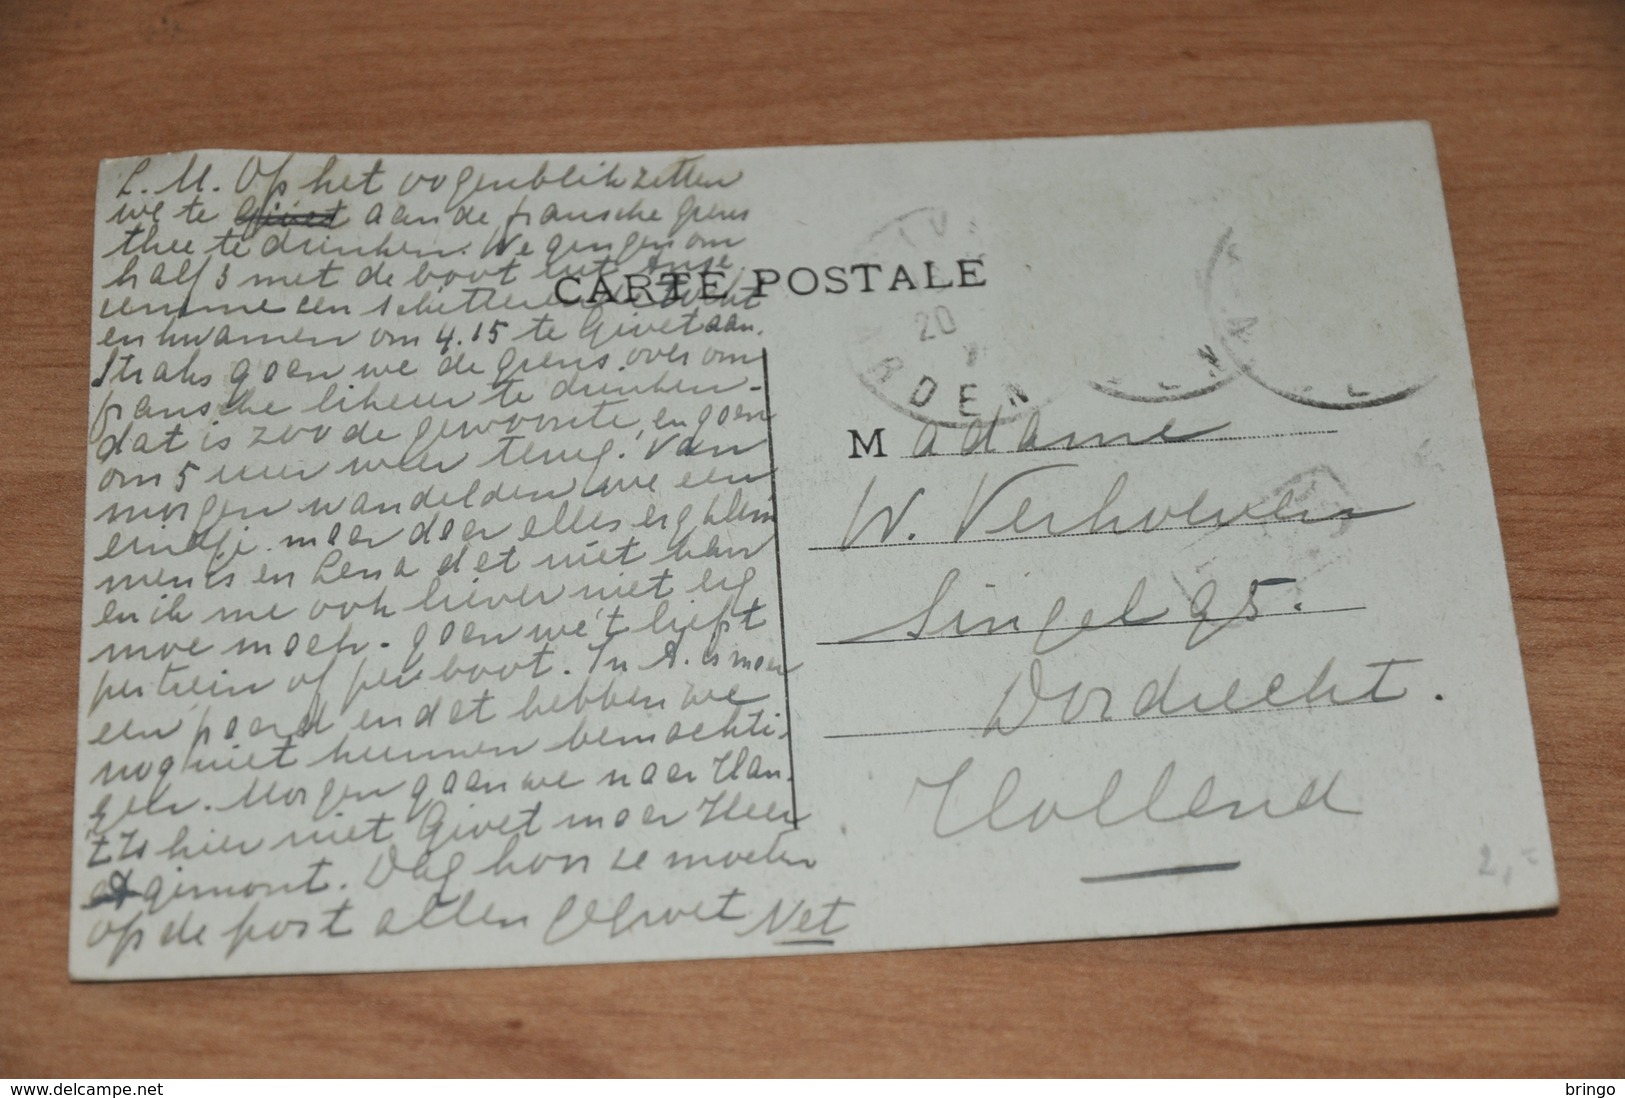 L. M. Op het oogenblik zetten
we te Givet aan de fransche grens
thee te drinken. We gingen om
half 3 met de boot uit Anse
remme een schitterende tocht
en kwamen om 4.15 te Givet aan.
Straks gaan we de grens over om
fransche likeur te drinken -
dat is zoo de gewoonte, en gaan
om 5 uur weer terug. Van
morgen wandelden we een
eindje. maar daar alles erg klim
mens en Lena dat niet kan
en ik me ook liever niet erg
moe maak - gaan we 't liefst
per trein of per boot. In A. is maar
een paard en dat hebben we
nog niet kunnen bemachti-
gen. Morgen gaan we naar Han.
't Is hier niet Givet maar Heer
Agimont. Dag hoor ze moeten
op de post allen gegroet Net
CARTE POSTALE
20
RDEN
Madame
W. Verhoeven
Singel 95.
Dordrecht.
Holland
2,-
delcampe.net
bringo